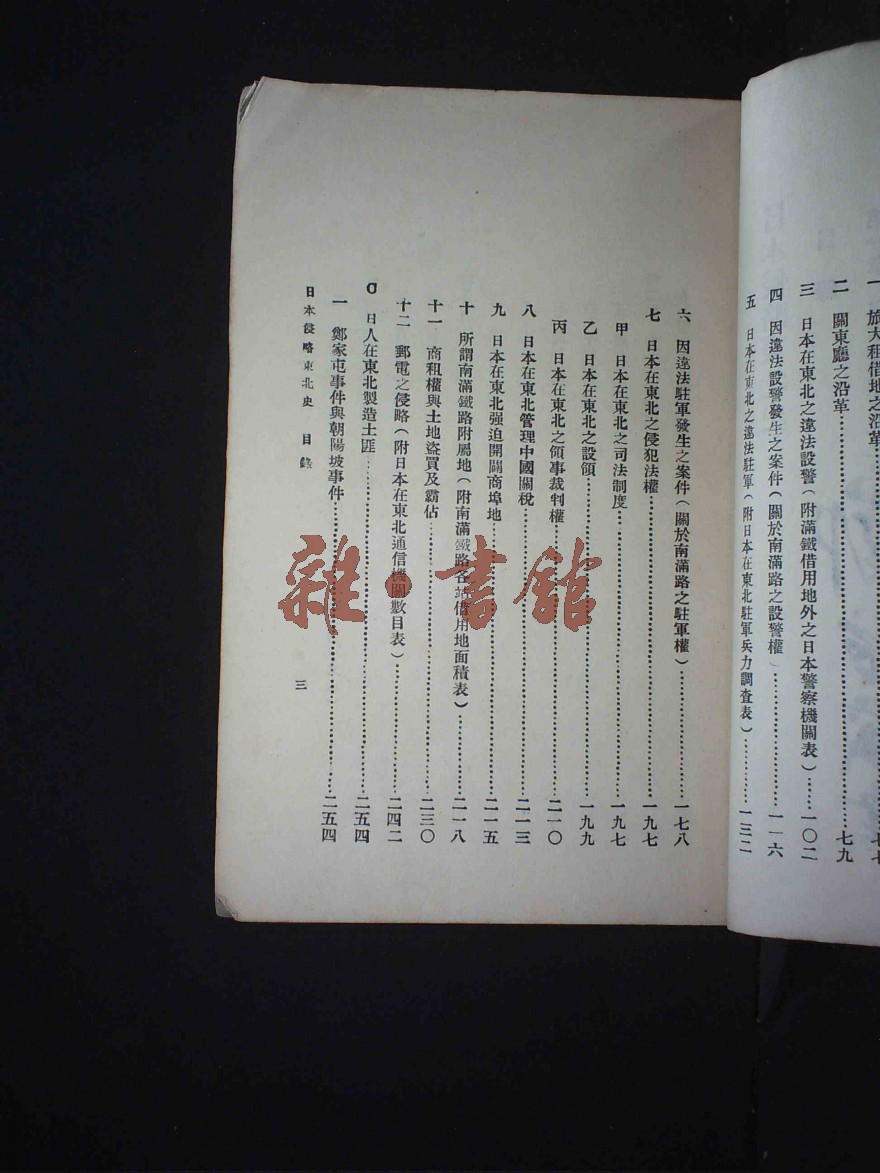 一 旅大租借地之沿革……七七
二 關東廳之沿革……七九
三 日本在東北之違法設警(附滿鐵借用地外之日本警察機關表)……一〇二
四 因違法設警發生之案件(關於南滿路之設警權)……一一六
五 日本在東北之違法駐軍(附日本在東北駐軍兵力調查表)……一三二
六 因違法駐軍發生之案件(關於南滿路之駐軍權)……一七八
七 日本在東北之侵犯法權……一九七
甲 日本在東北之司法制度……一九七
乙 日本在東北之設領……一九九
丙 日本在東北之領事裁判權……二一〇
八 日本在東北管理中國關稅……二一三
九 日本在東北强迫開闢商埠地……二一五
十 所謂南滿鐵路附屬地(附南滿鐵路各站借用地面積表)……二一八
十一 商租權與土地盜買及霸佔……二三〇
十二 郵電之侵略(附日本在東北通信機關數目表)……二四二
σ 日人在東北製造土匪……二五四
一 鄭家屯事件與朝陽坡事件……二五四
日本侵略東北史 目錄 三
雜·書館